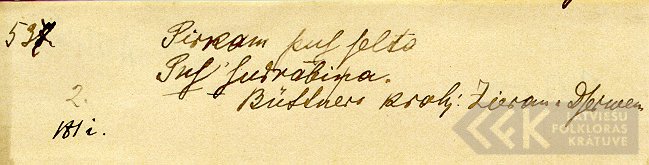 537
Sirkam puſ ſelta
Puſ ſudrabiņa.
2.
Büttners krahj: Zieran : Dſerwen
181i.
LATVIEŠU
FOLKLORAS
KRĀTUVE